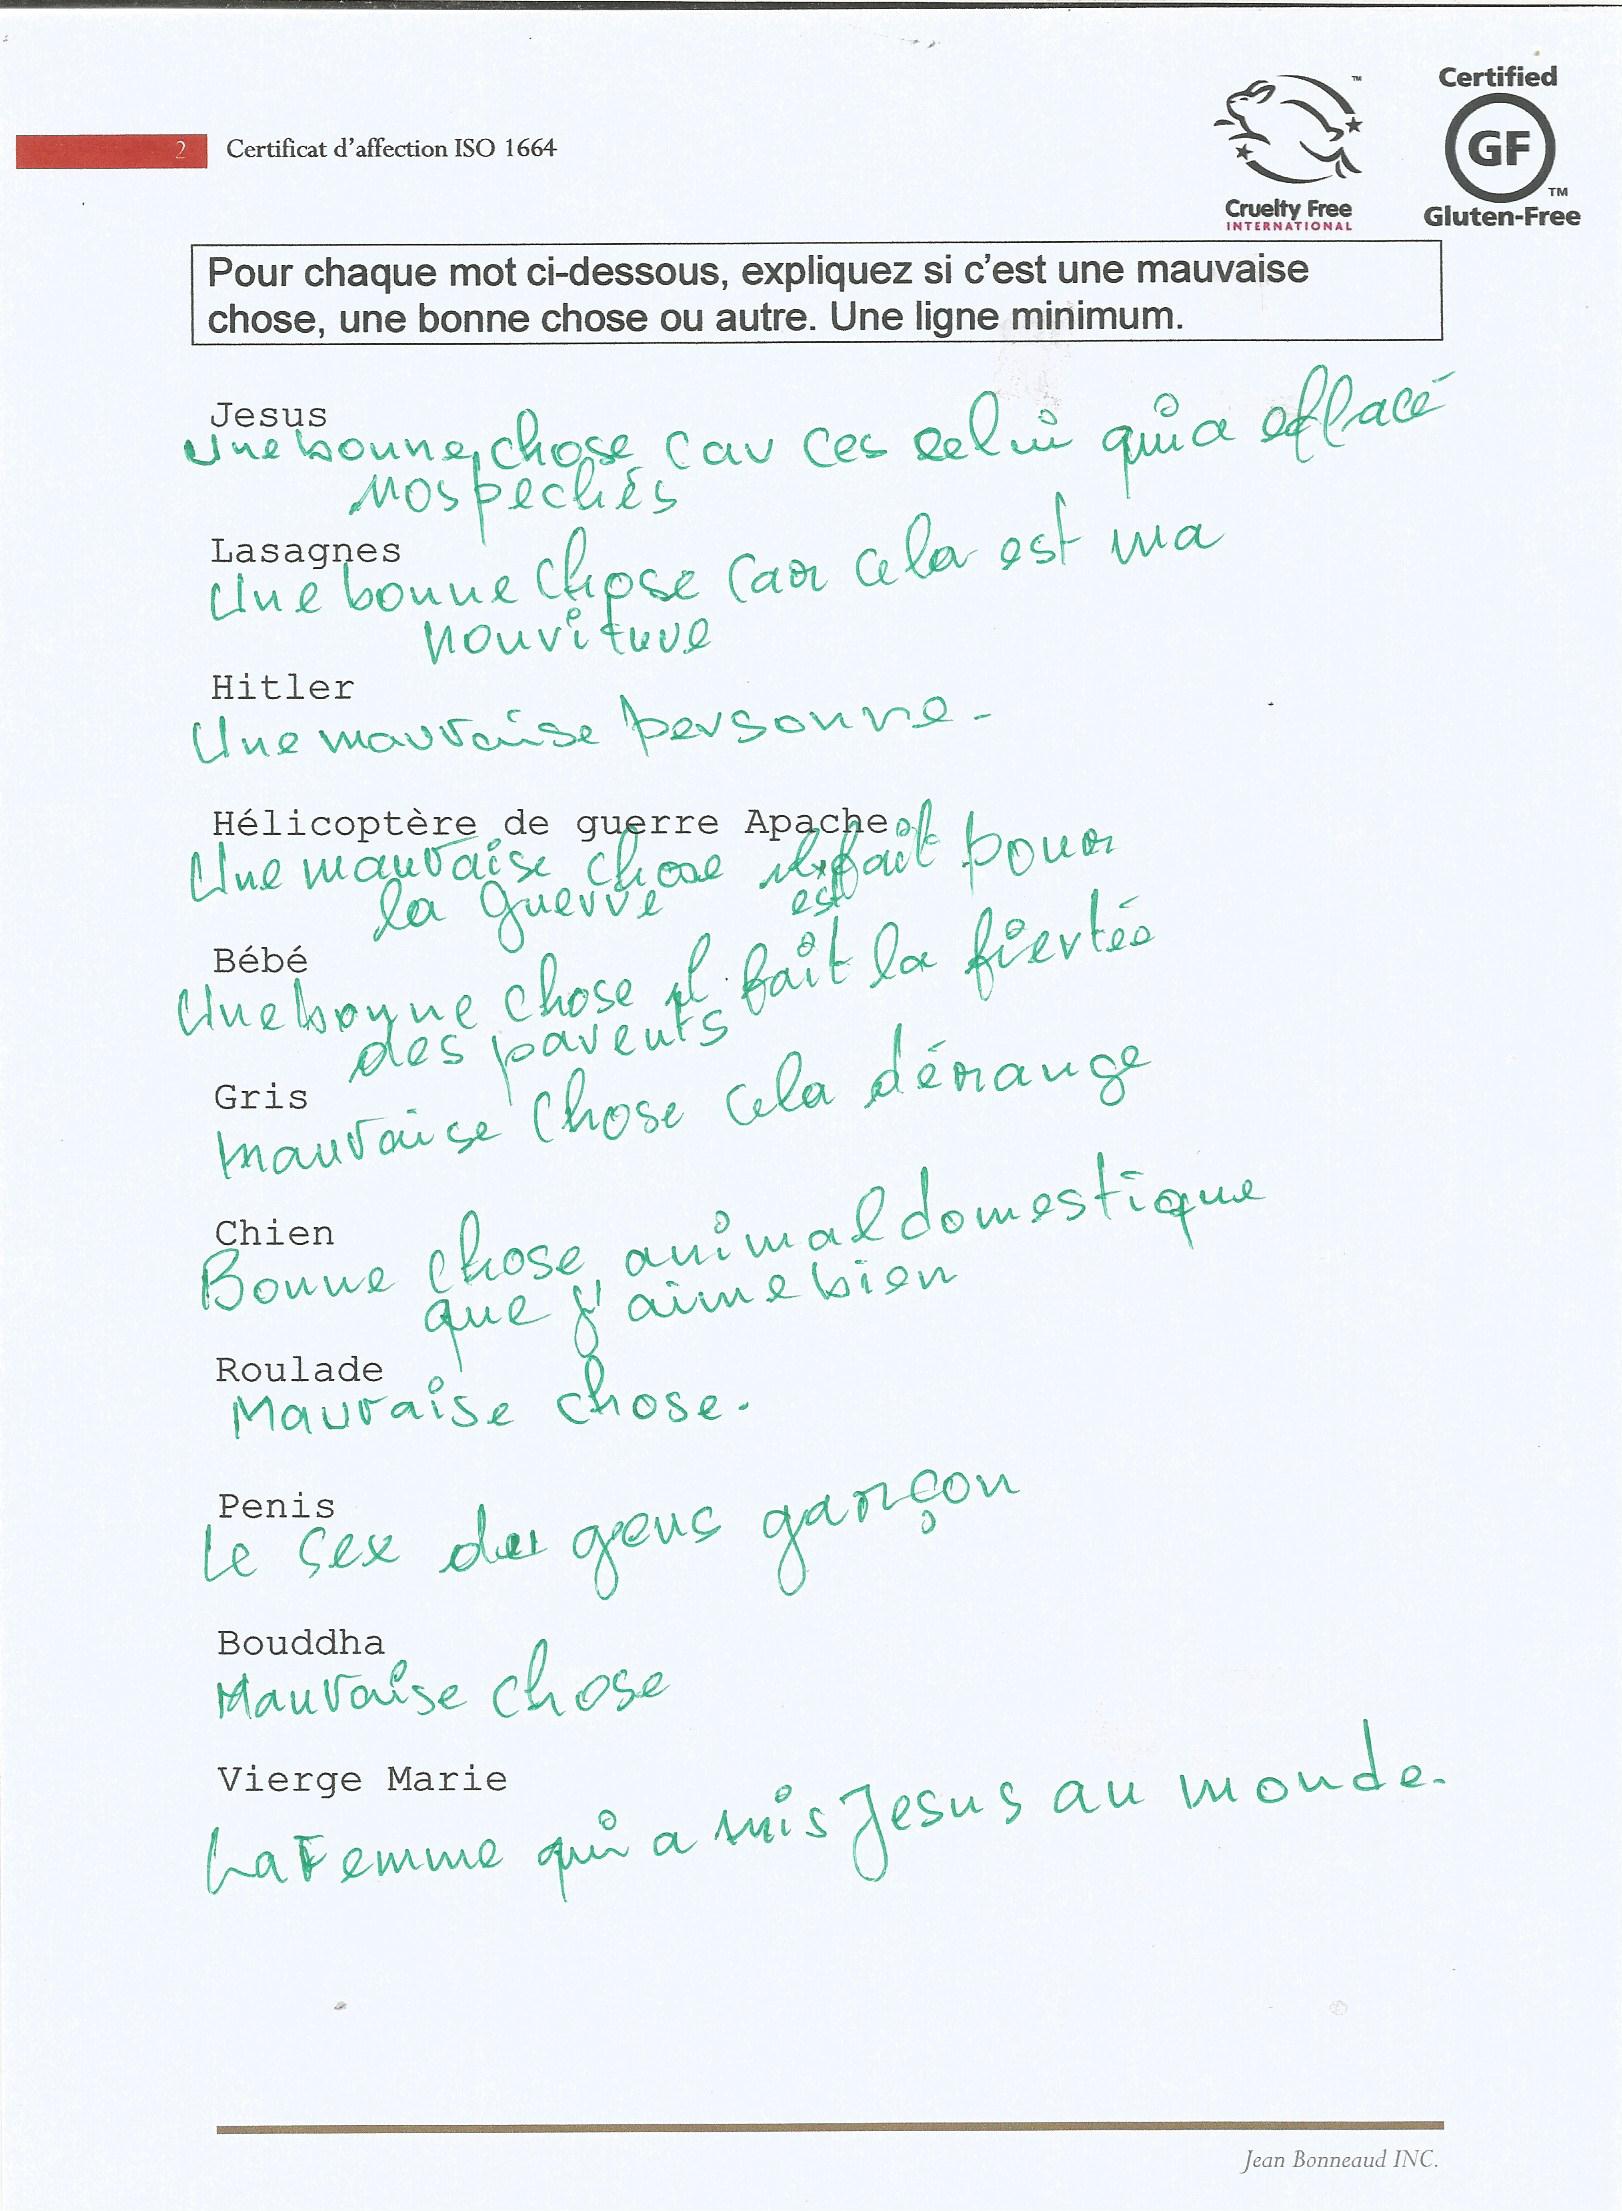 Certified
GF
TM
Gluten-Free
TM
Cruelty Free
INTERNATIONAL
2 Certificat d'affection ISO 1664
Pour chaque mot ci-dessous, expliquez si c'est une mauvaise
chose, une bonne chose ou autre. Une ligne minimum.
Jesus
Une bonne chose car ces celui qui a effacé
nos pechés
Lasagnes
Une bonne chose car cela est ma
nouriture
Hitler
Une mauvaise personne.
Hélicoptère de guerre Apache
Une mauvaise chose il est fait pour
la guerre
Bébé
Une bonne chose il fait la fiertée
des parents
Gris
mauvaise chose cela dérange
Chien
Bonne chose animal domestique
que j'aime bien
Roulade
Mauvaise chose.
Penis
Le sex du gens garçon
Bouddha
Mauvaise chose
Vierge Marie
La Femme qui a mis Jesus au monde.
Jean Bonneaud INC.